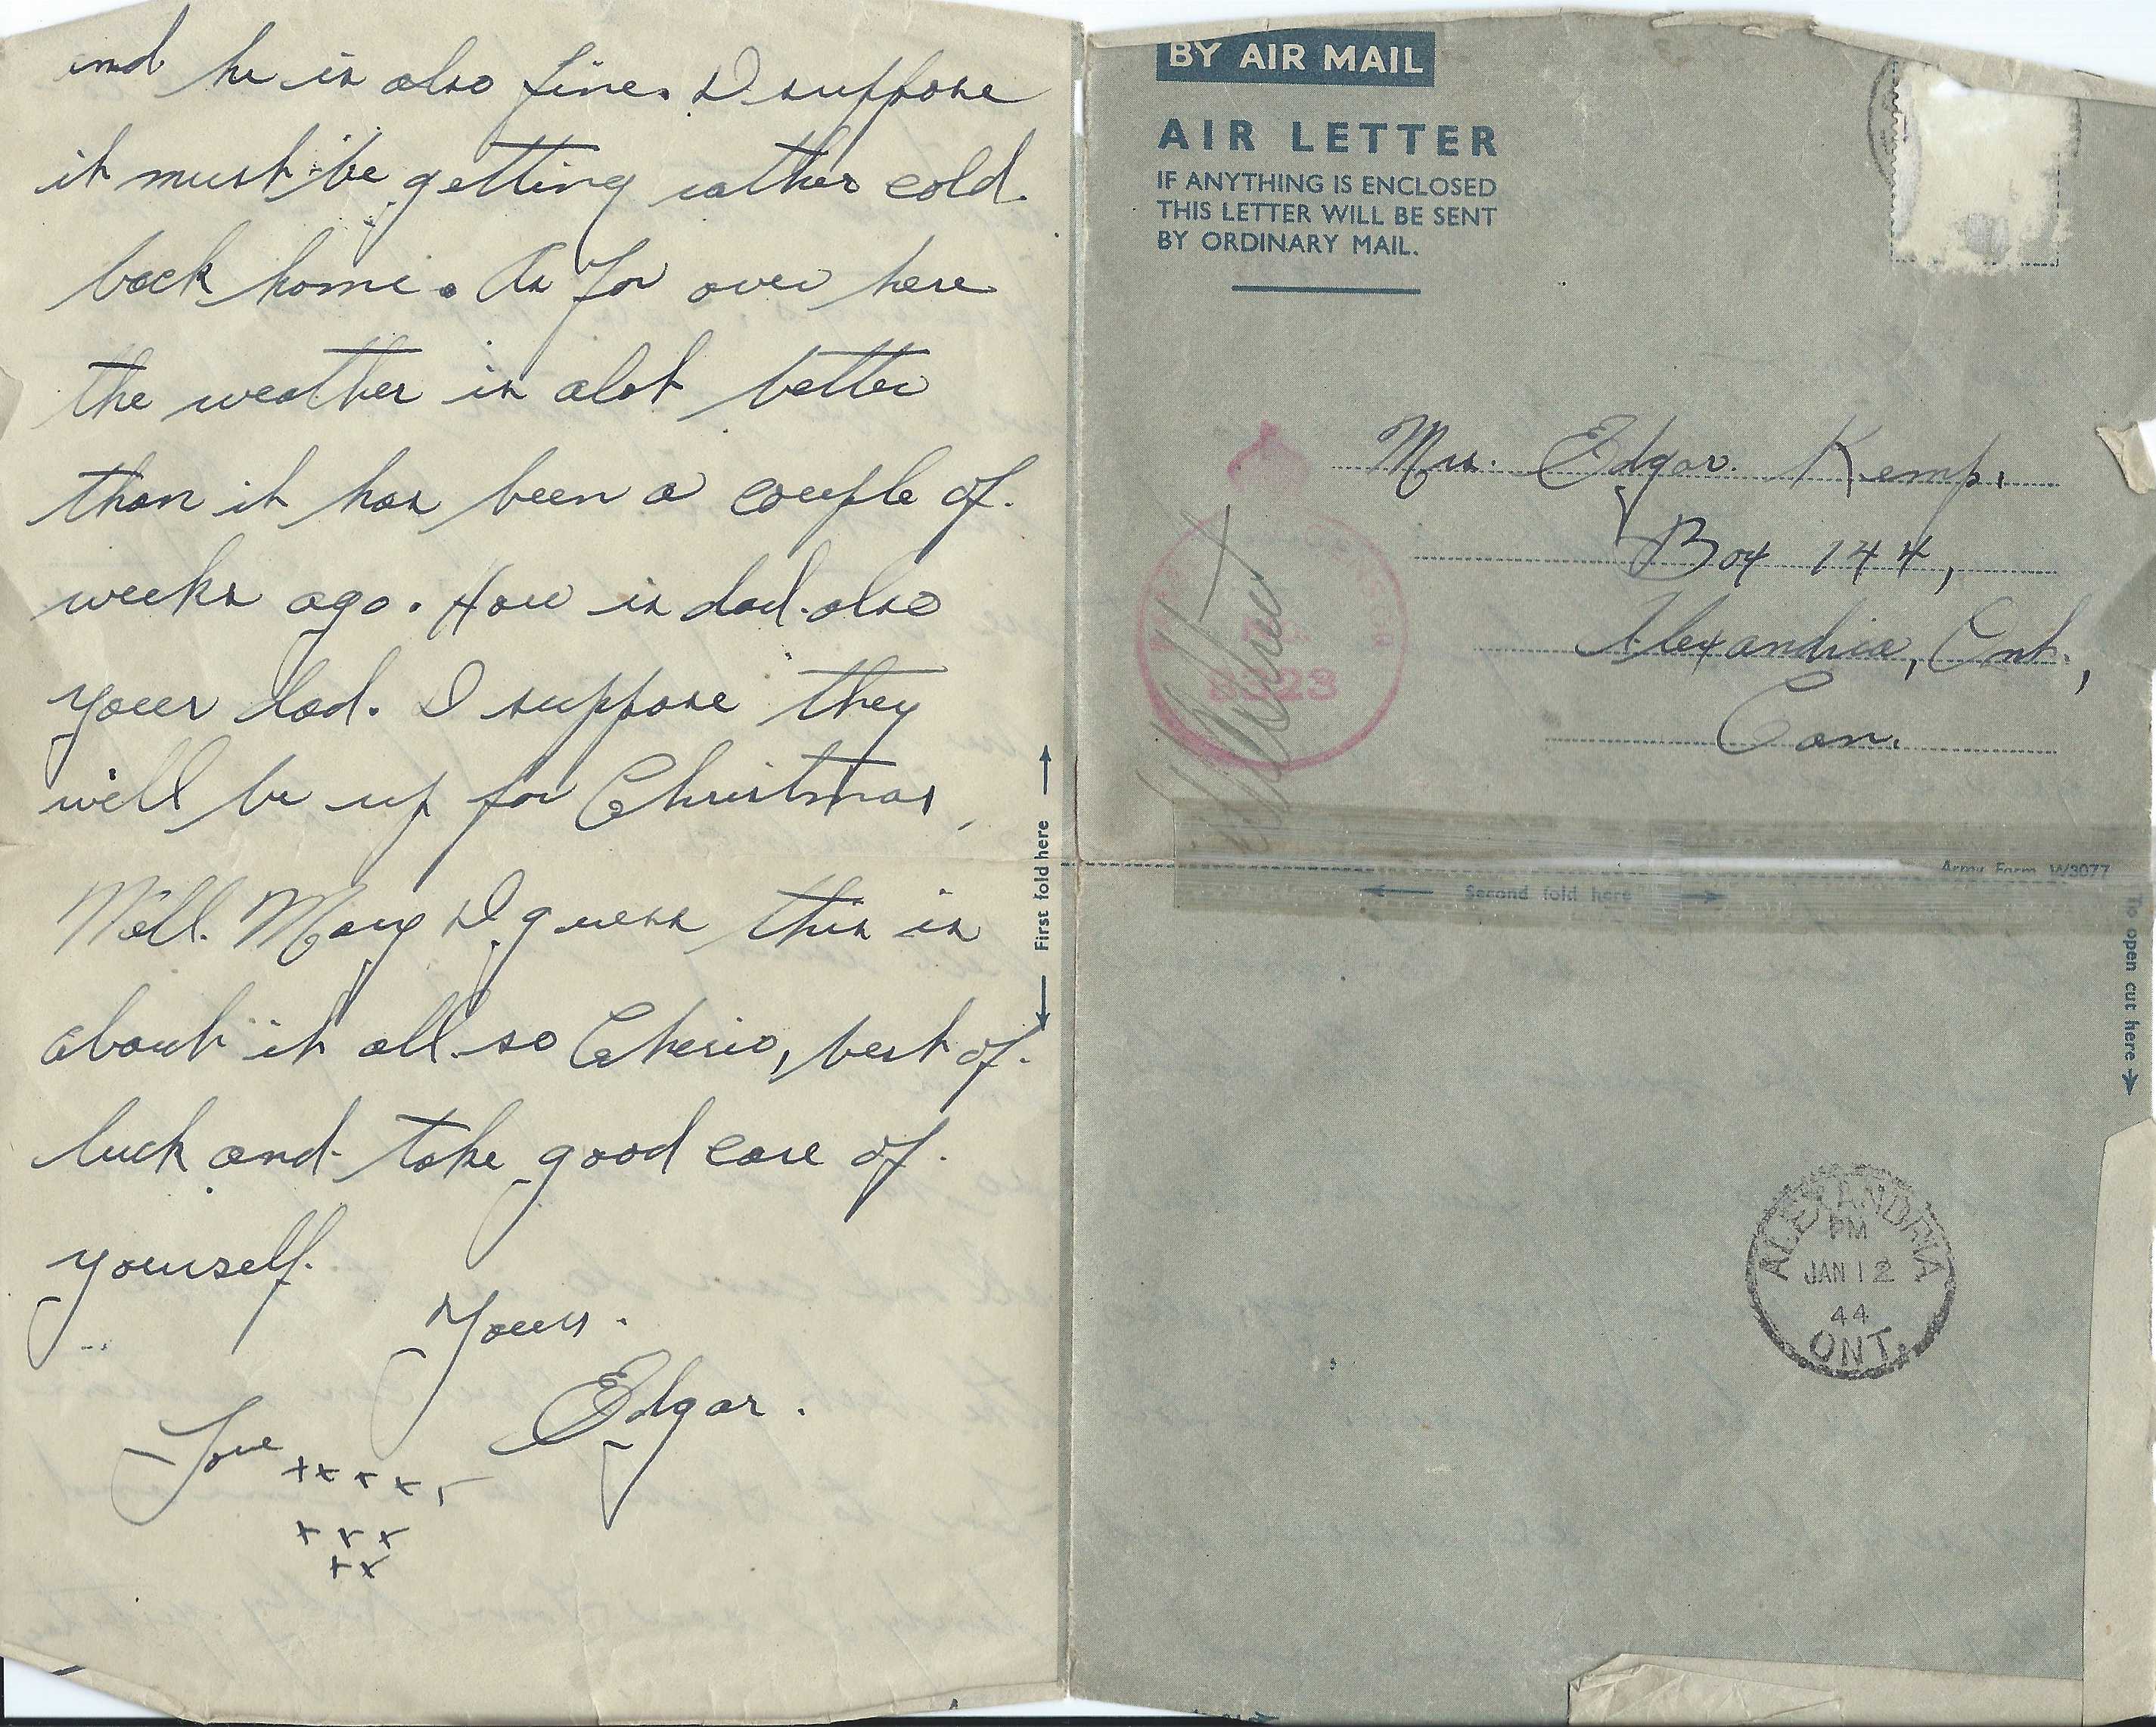 and he is also fine. I suppose
it must be getting rather cold
back home. As for over here
the weather is alot better
than it has been a couple of
weeks ago. How is dad also
your dad. I suppose they
will be up for Christmas,
Well Mary I guess this is
about it all so Cherio, best of
luck and take good care of
yourself.
Yours.
Edgar.
Love xxxxx
xxx
xx
First fold here
BY AIR MAIL
AIR LETTER
IF ANYTHING IS ENCLOSED
THIS LETTER WILL BE SENT
BY ORDINARY MAIL.
Mrs. Edgar Kemp,
Box 144,
Alexandria, Ont.,
Can.
8323
Army Form W3077
Second fold here
To open cut here
ALEXANDRIA
PM
JAN 12
44
ONT.